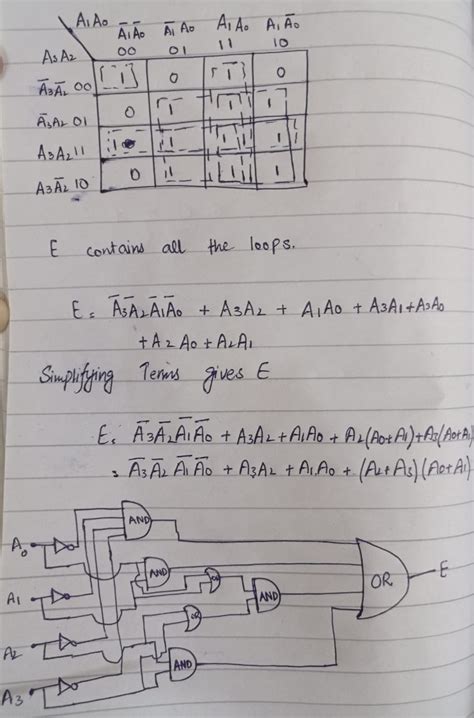 A₁A₀ A̅₁A̅₀ A̅₁A₀ A₁A₀ A₁A̅₀
A₃A₂ 00 01 11 10
A̅₃A̅₂ 00 1 0 1 0
A̅₃A₂ 01 0 1 1 1
A₃A₂ 11 1 1 1 1
A₃A̅₂ 10 0 1 1 1
E contains all the loops.
E = A̅₃A̅₂A̅₁A̅₀ + A₃A₂ + A₁A₀ + A₃A₁ + A₃A₀
+ A₂A₀ + A₂A₁
Simplifying Terms gives E
E = A̅₃A̅₂A̅₁A̅₀ + A₃A₂ + A₁A₀ + A₂(A₀+A₁) + A₃(A₀+A₁)
= A̅₃A̅₂A̅₁A̅₀ + A₃A₂ + A₁A₀ + (A₂+A₃)(A₀+A₁)
AND
A₀
AND
OR
OR
E
A₁
AND
OR
A₂
AND
A₃